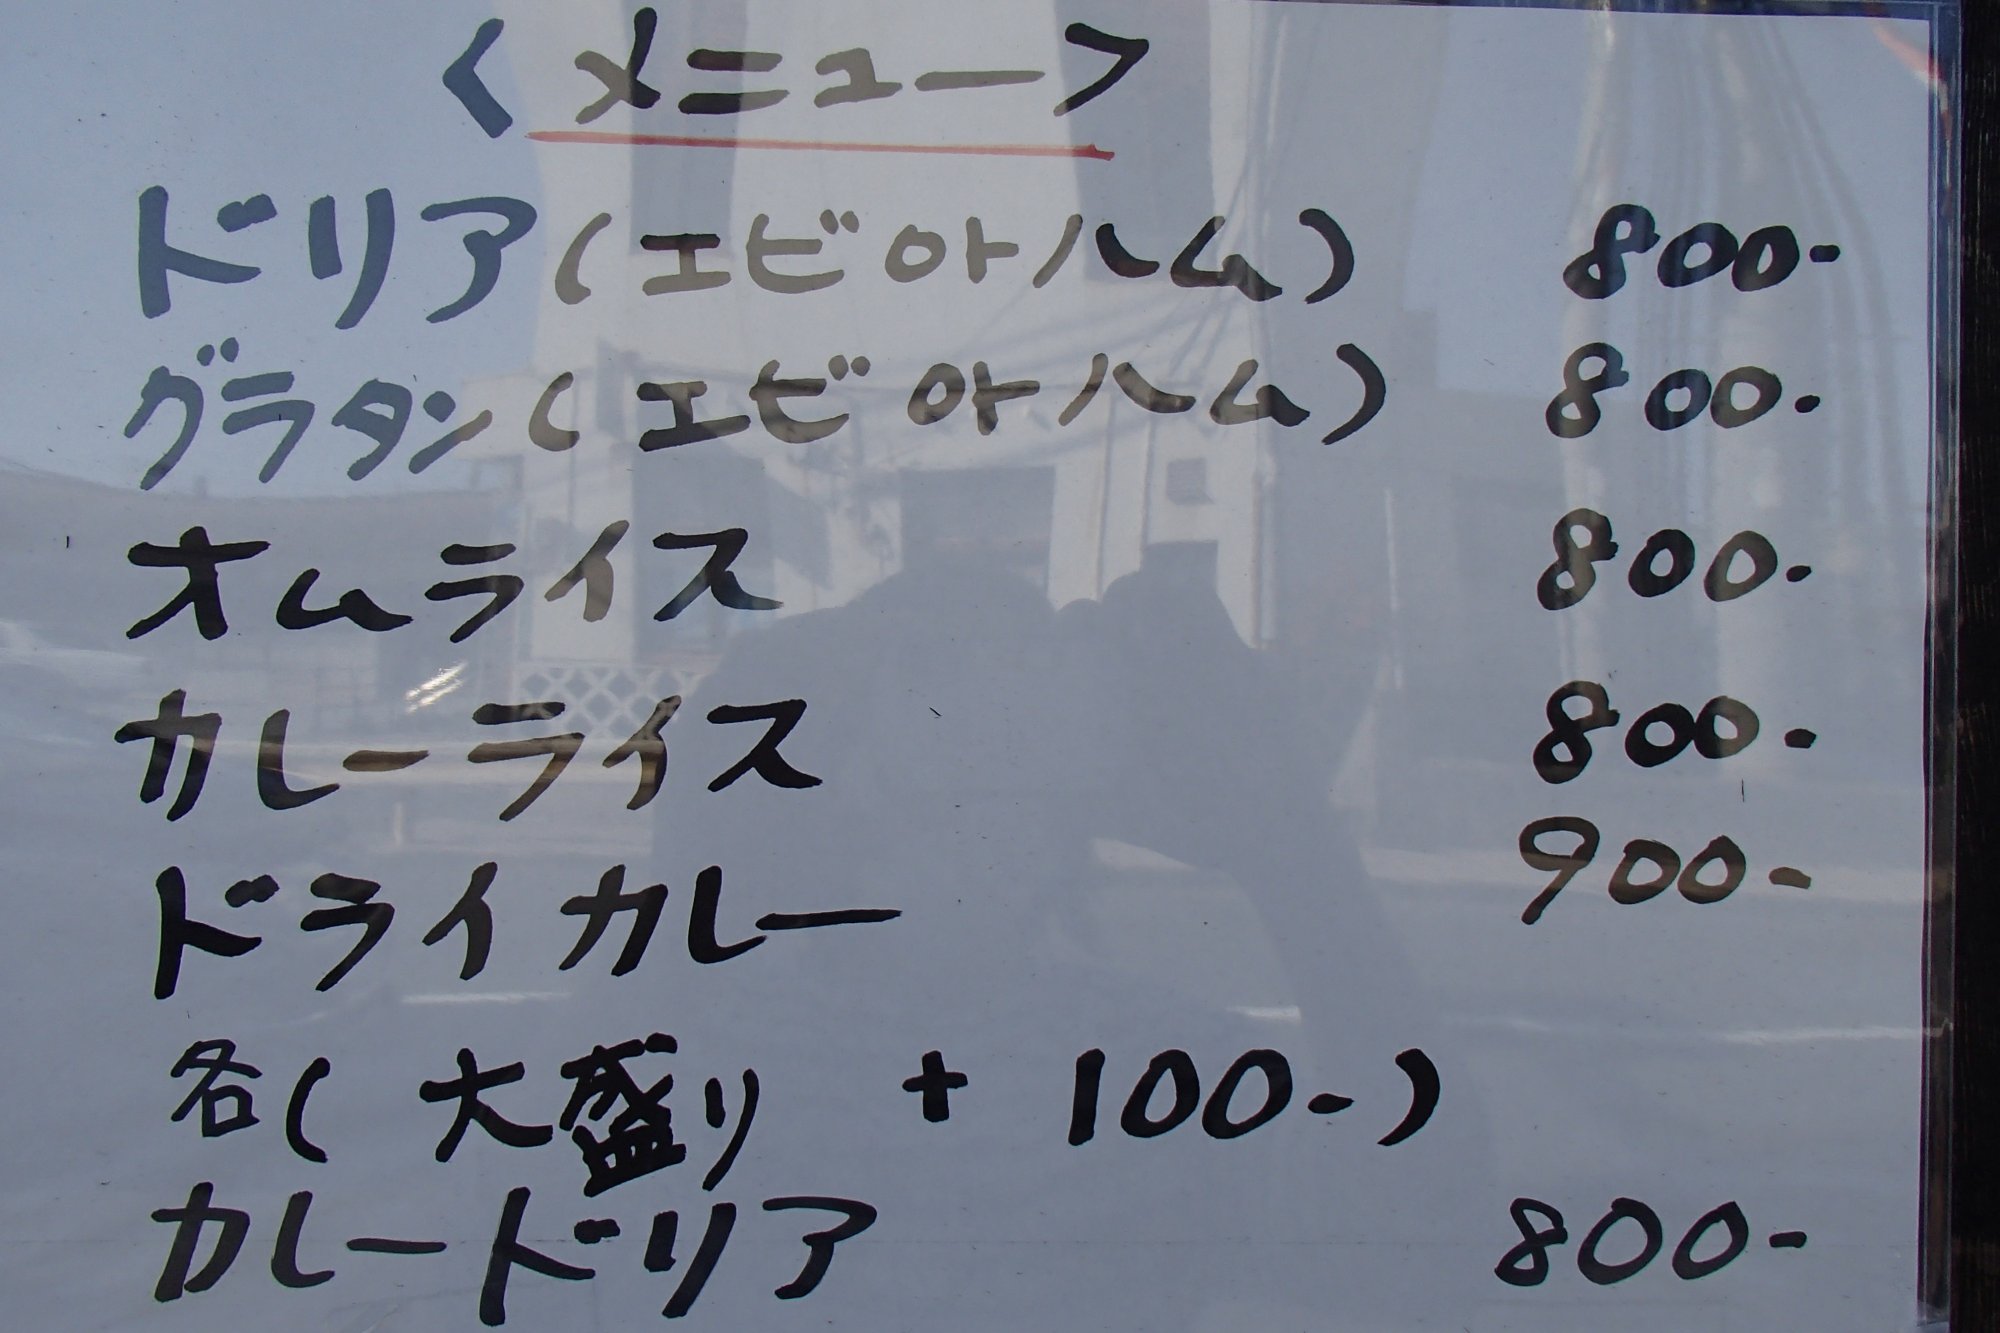 〈メニュー〉
ドリア(エビorハム) 800-
グラタン(エビorハム) 800-
オムライス 800-
カレーライス 800-
ドライカレー 900-
各(大盛り + 100-)
カレードリア 800-